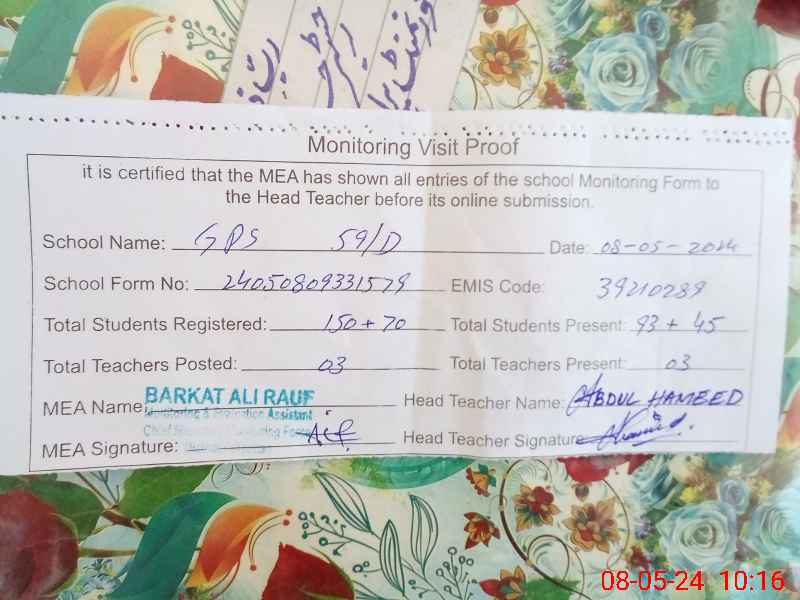 Monitoring Visit Proof
it is certified that the MEA has shown all entries of the school Monitoring Form to
the Head Teacher before its online submission.
School Name: GPS 59/D Date: 08-05-2024
School Form No: 24050809331579 EMIS Code: 39210289
Total Students Registered: 150+70 Total Students Present: 93+45
Total Teachers Posted: 03 Total Teachers Present: 03
MEA Name: BARKAT ALI RAUF Head Teacher Name: ABDUL HAMEED
Monitoring & Evaluation Assistant
MEA Signature: Head Teacher Signature
08-05-24 10:16